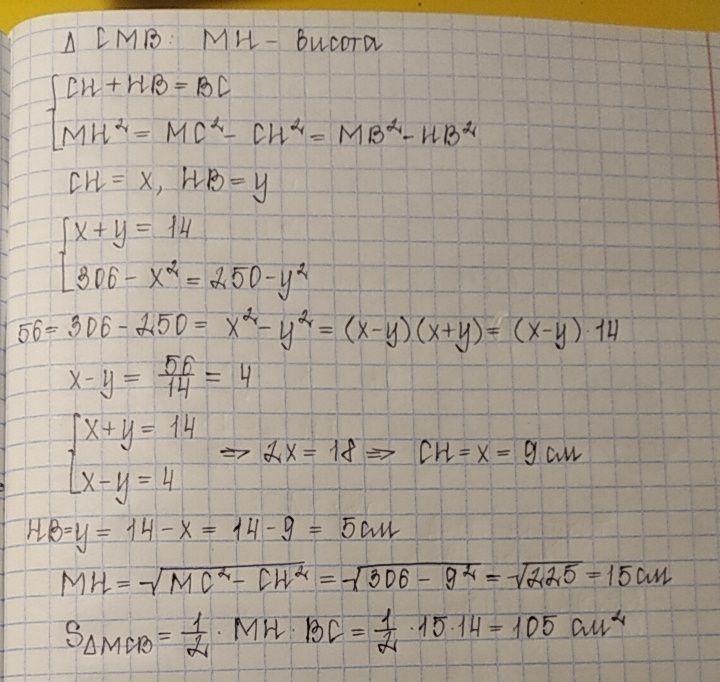 Δ CMB: MH - висота
{CH + HB = BC
{MH² = MC² - CH² = MB² - HB²
CH = x, HB = y
{x + y = 14
{306 - x² = 250 - y²
56 = 306 - 250 = x² - y² = (x-y)(x+y) = (x-y)·14
x - y = 56/14 = 4
{x + y = 14
{x - y = 4 ⇒ 2x = 18 ⇒ CH = x = 9 см
HB = y = 14 - x = 14 - 9 = 5 см
MH = √(MC² - CH²) = √(306 - 9²) = √225 = 15 см
S△MCB = 1/2 · MH · BC = 1/2 · 15 · 14 = 105 см²